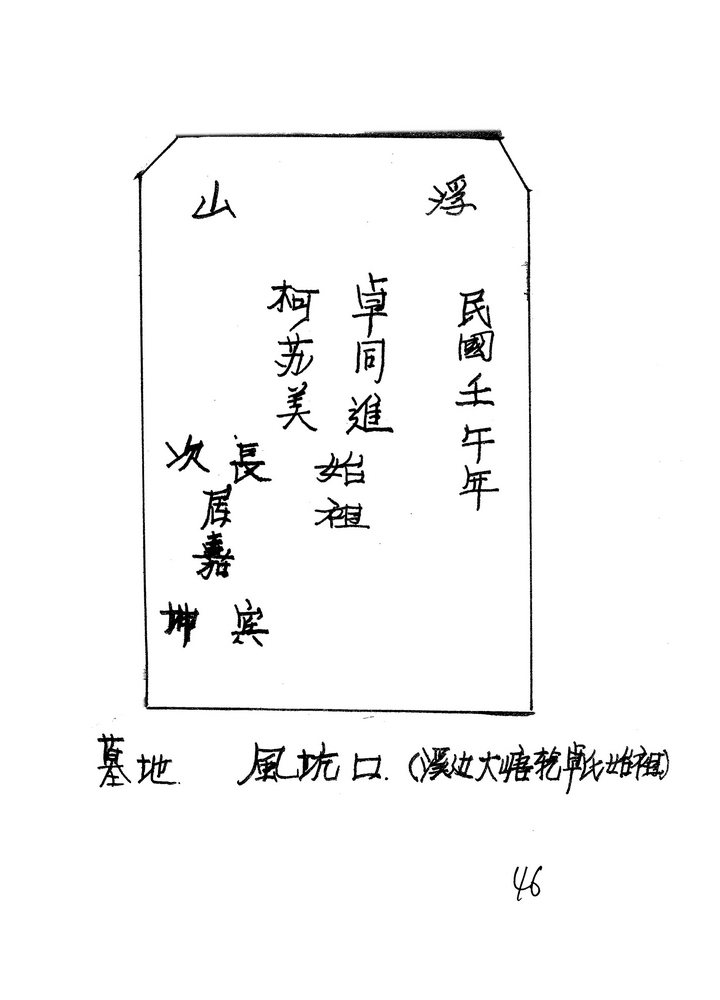 浮山
民國壬午年
卓同進
柯苏美
始祖
長 次
居
嘉
宾 坤
墓地 風坑口.(溪边大塘乾卓氏始祖)
46